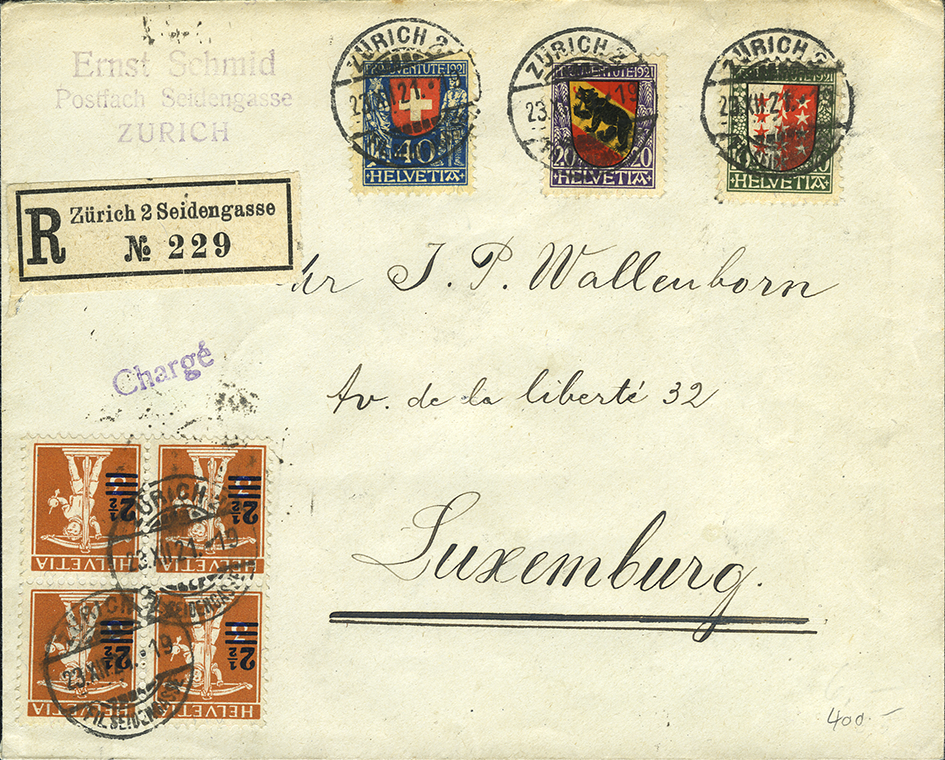 Ernst Schmid
Postfach Seidengasse
ZURICH
ZÜRICH 2
23.XII.21.
PRO JUVENTUTE 1921
40
HELVETIA
ZÜRICH 2
23.XII.21.-19
PRO JUVENTUTE 1921
20 20
HELVETIA
ZÜRICH 2
23.XII.21.-19
1921
HELVETIA
R Zürich 2 Seidengasse
№ 229
J. P. Wallenborn
Chargé
Av. de la liberté 32
Luxemburg.
2½ 2½
ZÜRICH 2
23.XII.21.-19
HELVETIA HELVETIA
2½ 2½
ZÜRICH 2
23.XII.21.-19
HELVETIA HELVETIA
400.-